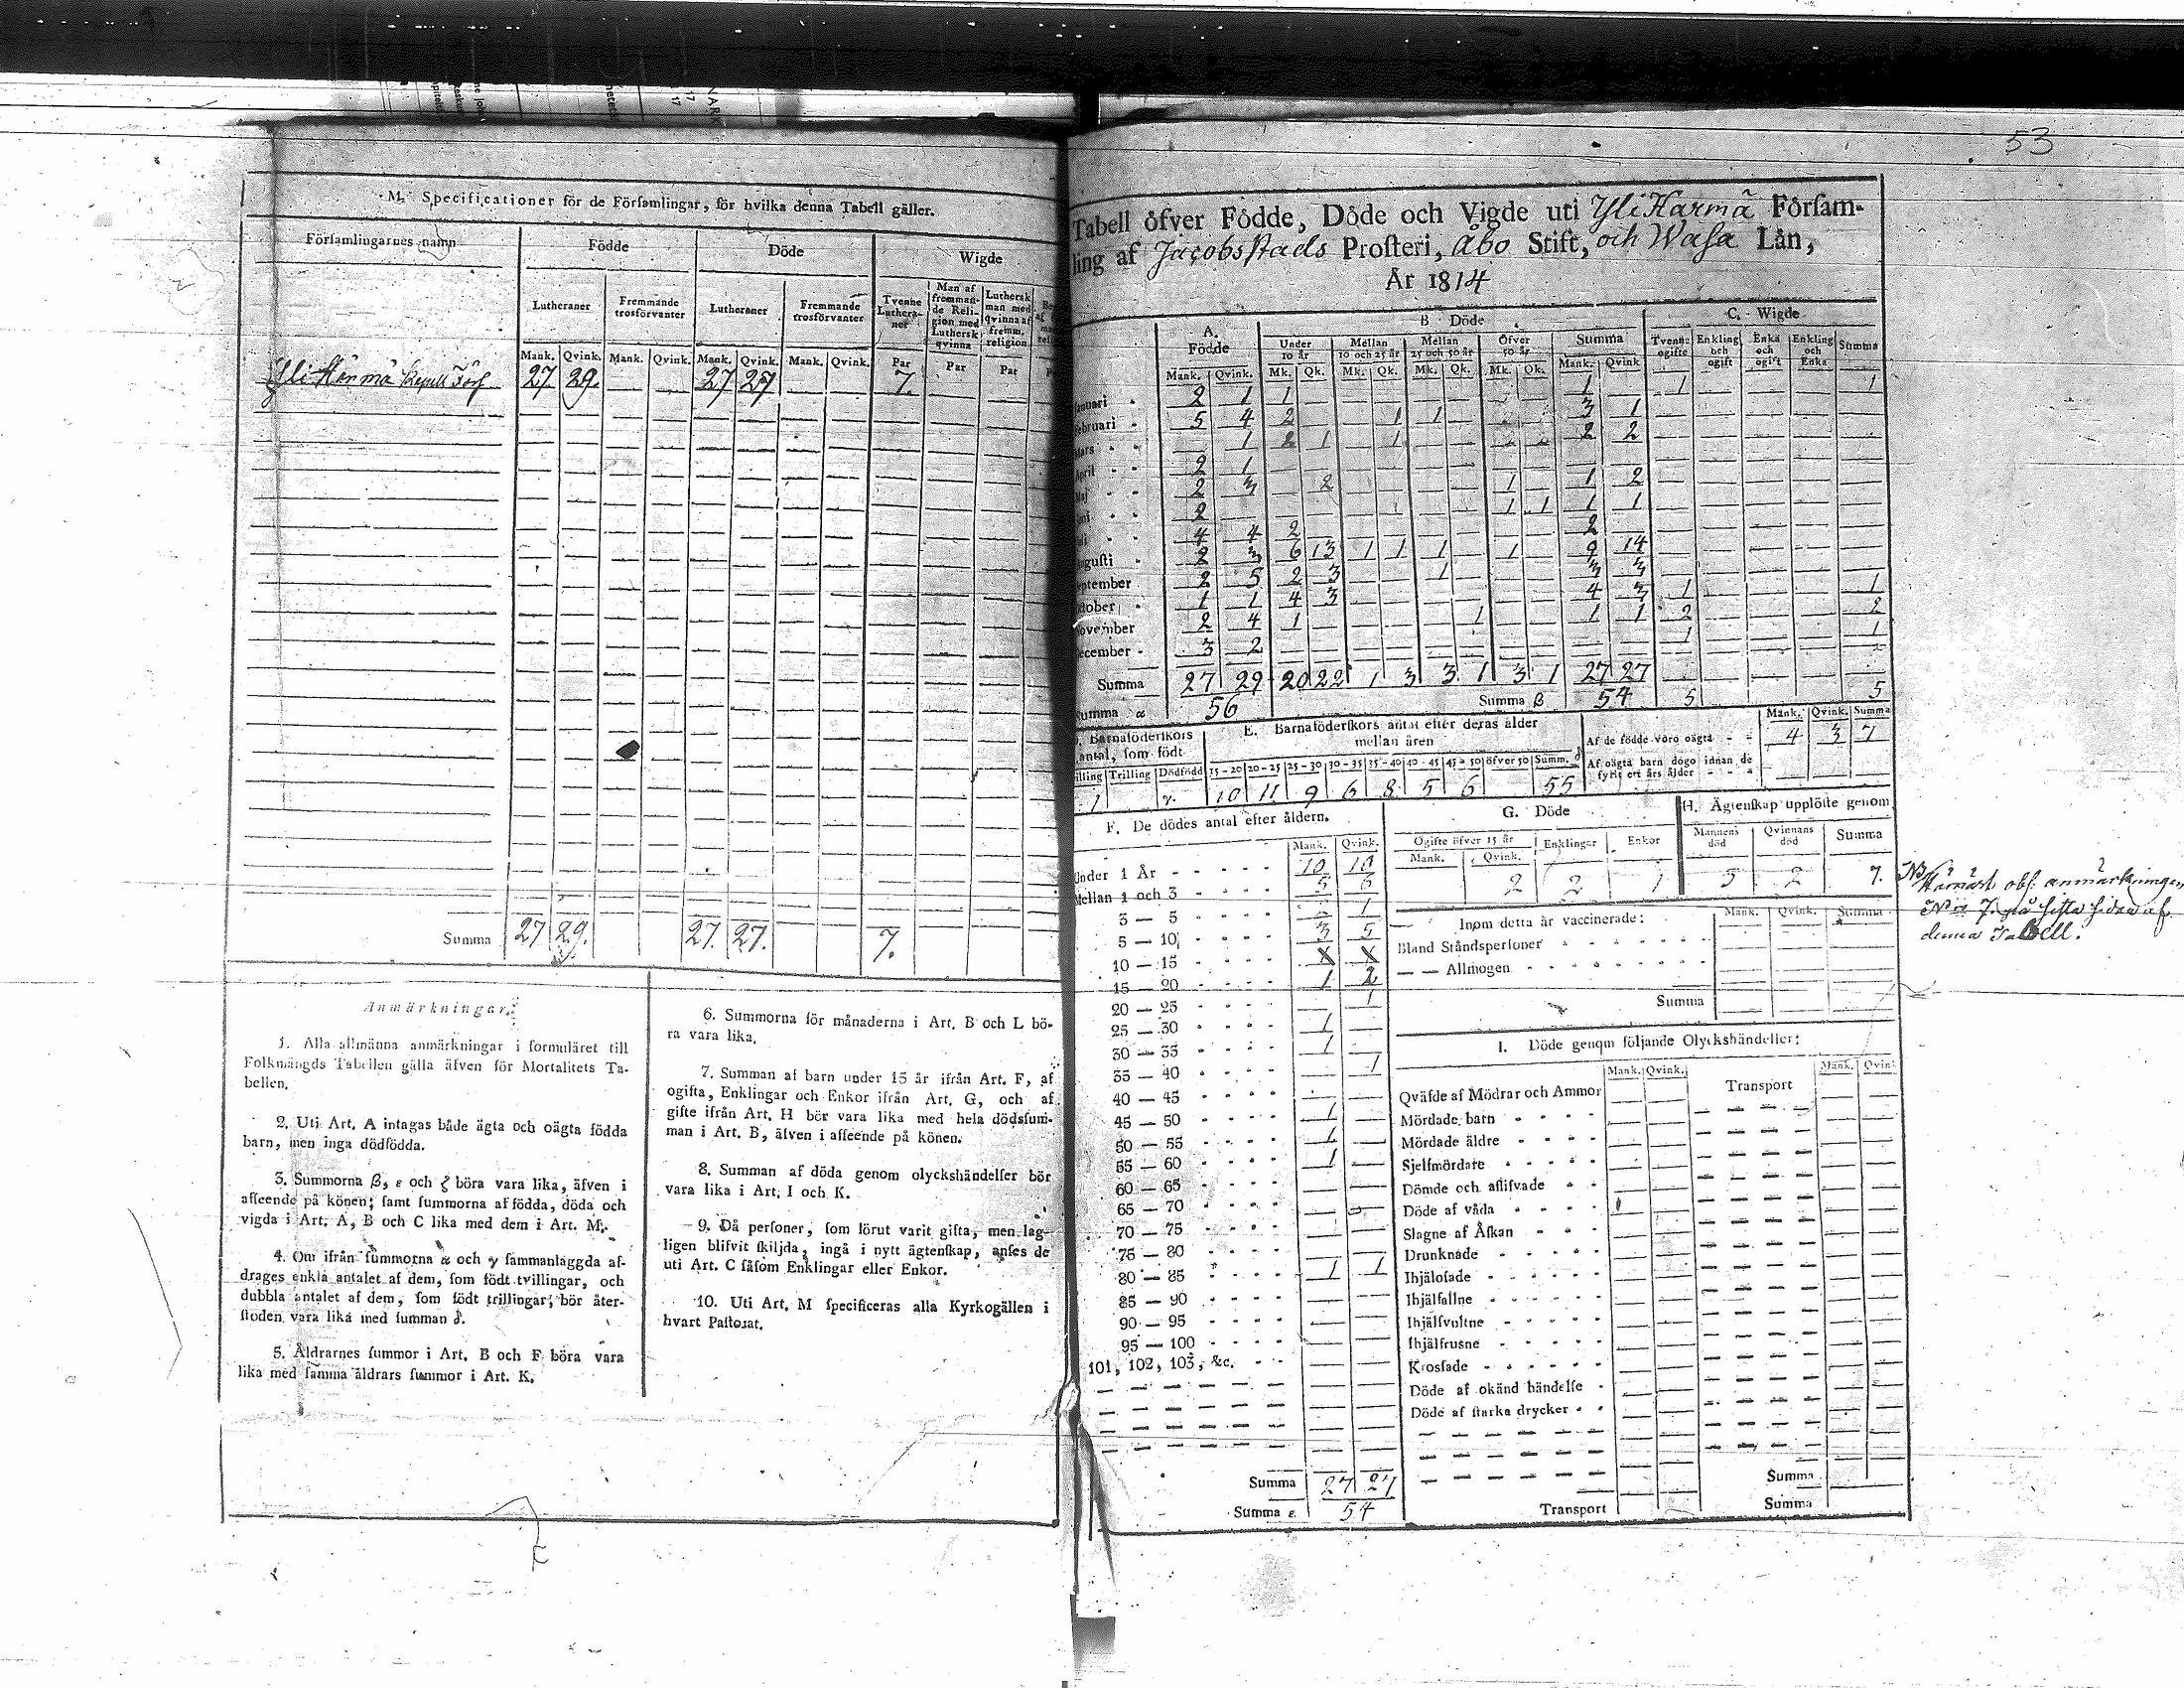 53
M. Specificationer för de Församlingar, för hvilka denna Tabell gäller.
Församlingarnes namn Födde Döde Wigde
Lutheraner Fremmande trosförvanter Lutheraner Fremmande trosförvanter Tvenne Lutheraner Man af fremmande Religion med Luthersk qvinna Luthersk man med qvinna af fremm. religion
Mank. Qvink. Mank. Qvink. Mank. Qvink. Mank. Qvink. Par Par Par
Yli Härmä Capell Förs 27 29 27 27 7.
Summa 27 29. 27. 27. 7.
Anmärkningar.
1. Alla allmänna anmärkningar i formuläret till
Folkmängds Tabellen gälla äfven för Mortalitets Ta-
bellen.
2. Uti Art. A intagas både ägta och oägta födda
barn, men inga dödfödda.
3. Summorna β, ε och ζ böra vara lika, äfven i
afseende på könen; samt summorna af födda, döda och
vigda i Art. A, B och C lika med dem i Art. M.
4. Om ifrån summorna α och γ sammanlaggda af-
drages enkla antalet af dem, som födt tvillingar, och
dubbla antalet af dem, som födt trillingar, bör åter-
stoden vara lika med summan δ.
5. Åldrarnes summor i Art. B och F böra vara
lika med samma åldrars summor i Art. K.
6. Summorna för månaderna i Art. B och L bö-
ra vara lika.
7. Summan af barn under 15 år ifrån Art. F, af
ogifta, Enklingar och Enkor ifrån Art. G, och af
gifte ifrån Art. H bör vara lika med hela dödssum-
man i Art. B, äfven i afseende på könen.
8. Summan af döda genom olyckshändelser bör
vara lika i Art. I och K.
9. Då personer, som förut varit gifta, men lag-
ligen blifvit skiljda, ingå i nytt ägtenskap, anses de
uti Art. C såsom Enklingar eller Enkor.
10. Uti Art. M specificeras alla Kyrkogällen i
hvart Pastorat.
Tabell öfver Födde, Döde och Vigde uti Yli Harmä Försam-
ling af Jacobsstads Prosteri, Åbo Stift, och Wasa Län,
År 1814
A. Födde B. Döde C. Wigde
Under 10 år Mellan 10 och 25 år Mellan 25 och 50 år Öfver 50 år Summa Tvenne ogifte Enkling och ogift Enka och ogift Enkling och Enka Summa
Mank. Qvink. Mk. Qk. Mk. Qk. Mk. Qk. Mk. Qk. Mank. Qvink
Januari 2 1 1 1 1 1
Februari 5 4 2 1 1 3 1
Mars 1 2 1 1 2 2
April 2 1
Maj 2 3 2 1 1 2
Juni 2 1 1 1 1
Juli 4 4 2 2
Augusti 2 3 6 13 1 1 1 1 9 14
September 2 5 2 3 1 3 3
October 1 1 4 3 4 3 1 1
November 2 4 1 1 1 1 2 2
December 3 2 1 1
Summa 27 29 20 22 1 3 3 1 3 1 27 27
Summa α 56 Summa β 54 5 5
D. Barnaföderskors antal, som födt
Tvilling Trilling Dödfödd
1 γ.
E. Barnaföderskors antal efter deras ålder mellan åren
15-20 20-25 25-30 30-35 35-40 40-45 45-50 öfver 50 Summ. δ
10 11 9 6 8 5 6 55
Mank. Qvink. Summa
Af de födde voro oägta 4 3 7
Af oägta barn dogo innan de fyllt ett års ålder
F. De dödes antal efter åldern.
Mank. Qvink.
Under 1 År 10 10
Mellan 1 och 3 5 6
3 — 5 1
5 — 10 3 5
10 — 15 X X
15 — 20 1 2
20 — 25 1
25 — 30 1
30 — 35 1
35 — 40 1
40 — 45
45 — 50 1
50 — 55 1
55 — 60 1
60 — 65
65 — 70
70 — 75
75 — 80
80 — 85 1 1
85 — 90
90 — 95
95 — 100
101, 102, 103, &c.
Summa 27 27
Summa ε. 54
G. Döde
Ogifte öfver 15 år Enklingar Enkor
Mank. Qvink.
2 2 1
H. Ägtenskap upplöste genom
Mannens död Qvinnans död Summa
5 2 7.
NB Härnäst obs. anmärkningen
N:o 7. på sista sidan af
denna Tabell.
Inom detta år vaccinerade: Mank. Qvink. Summa
Bland Ståndspersoner
— — Allmogen
Summa
I. Döde genom följande Olyckshändelser:
Mank. Qvink. Transport Mank. Qvink
Qväfde af Mödrar och Ammor
Mördade barn
Mördade äldre
Sjelfmördare
Dömde och aflifvade
Döde af våda
Slagne af Åskan
Drunknade
Ihjälosade
Ihjälfallne
Ihjälsvultne
Ihjälfrusne
Krossade
Döde af okänd händelse
Döde af starka drycker
Summa
Transport Summa